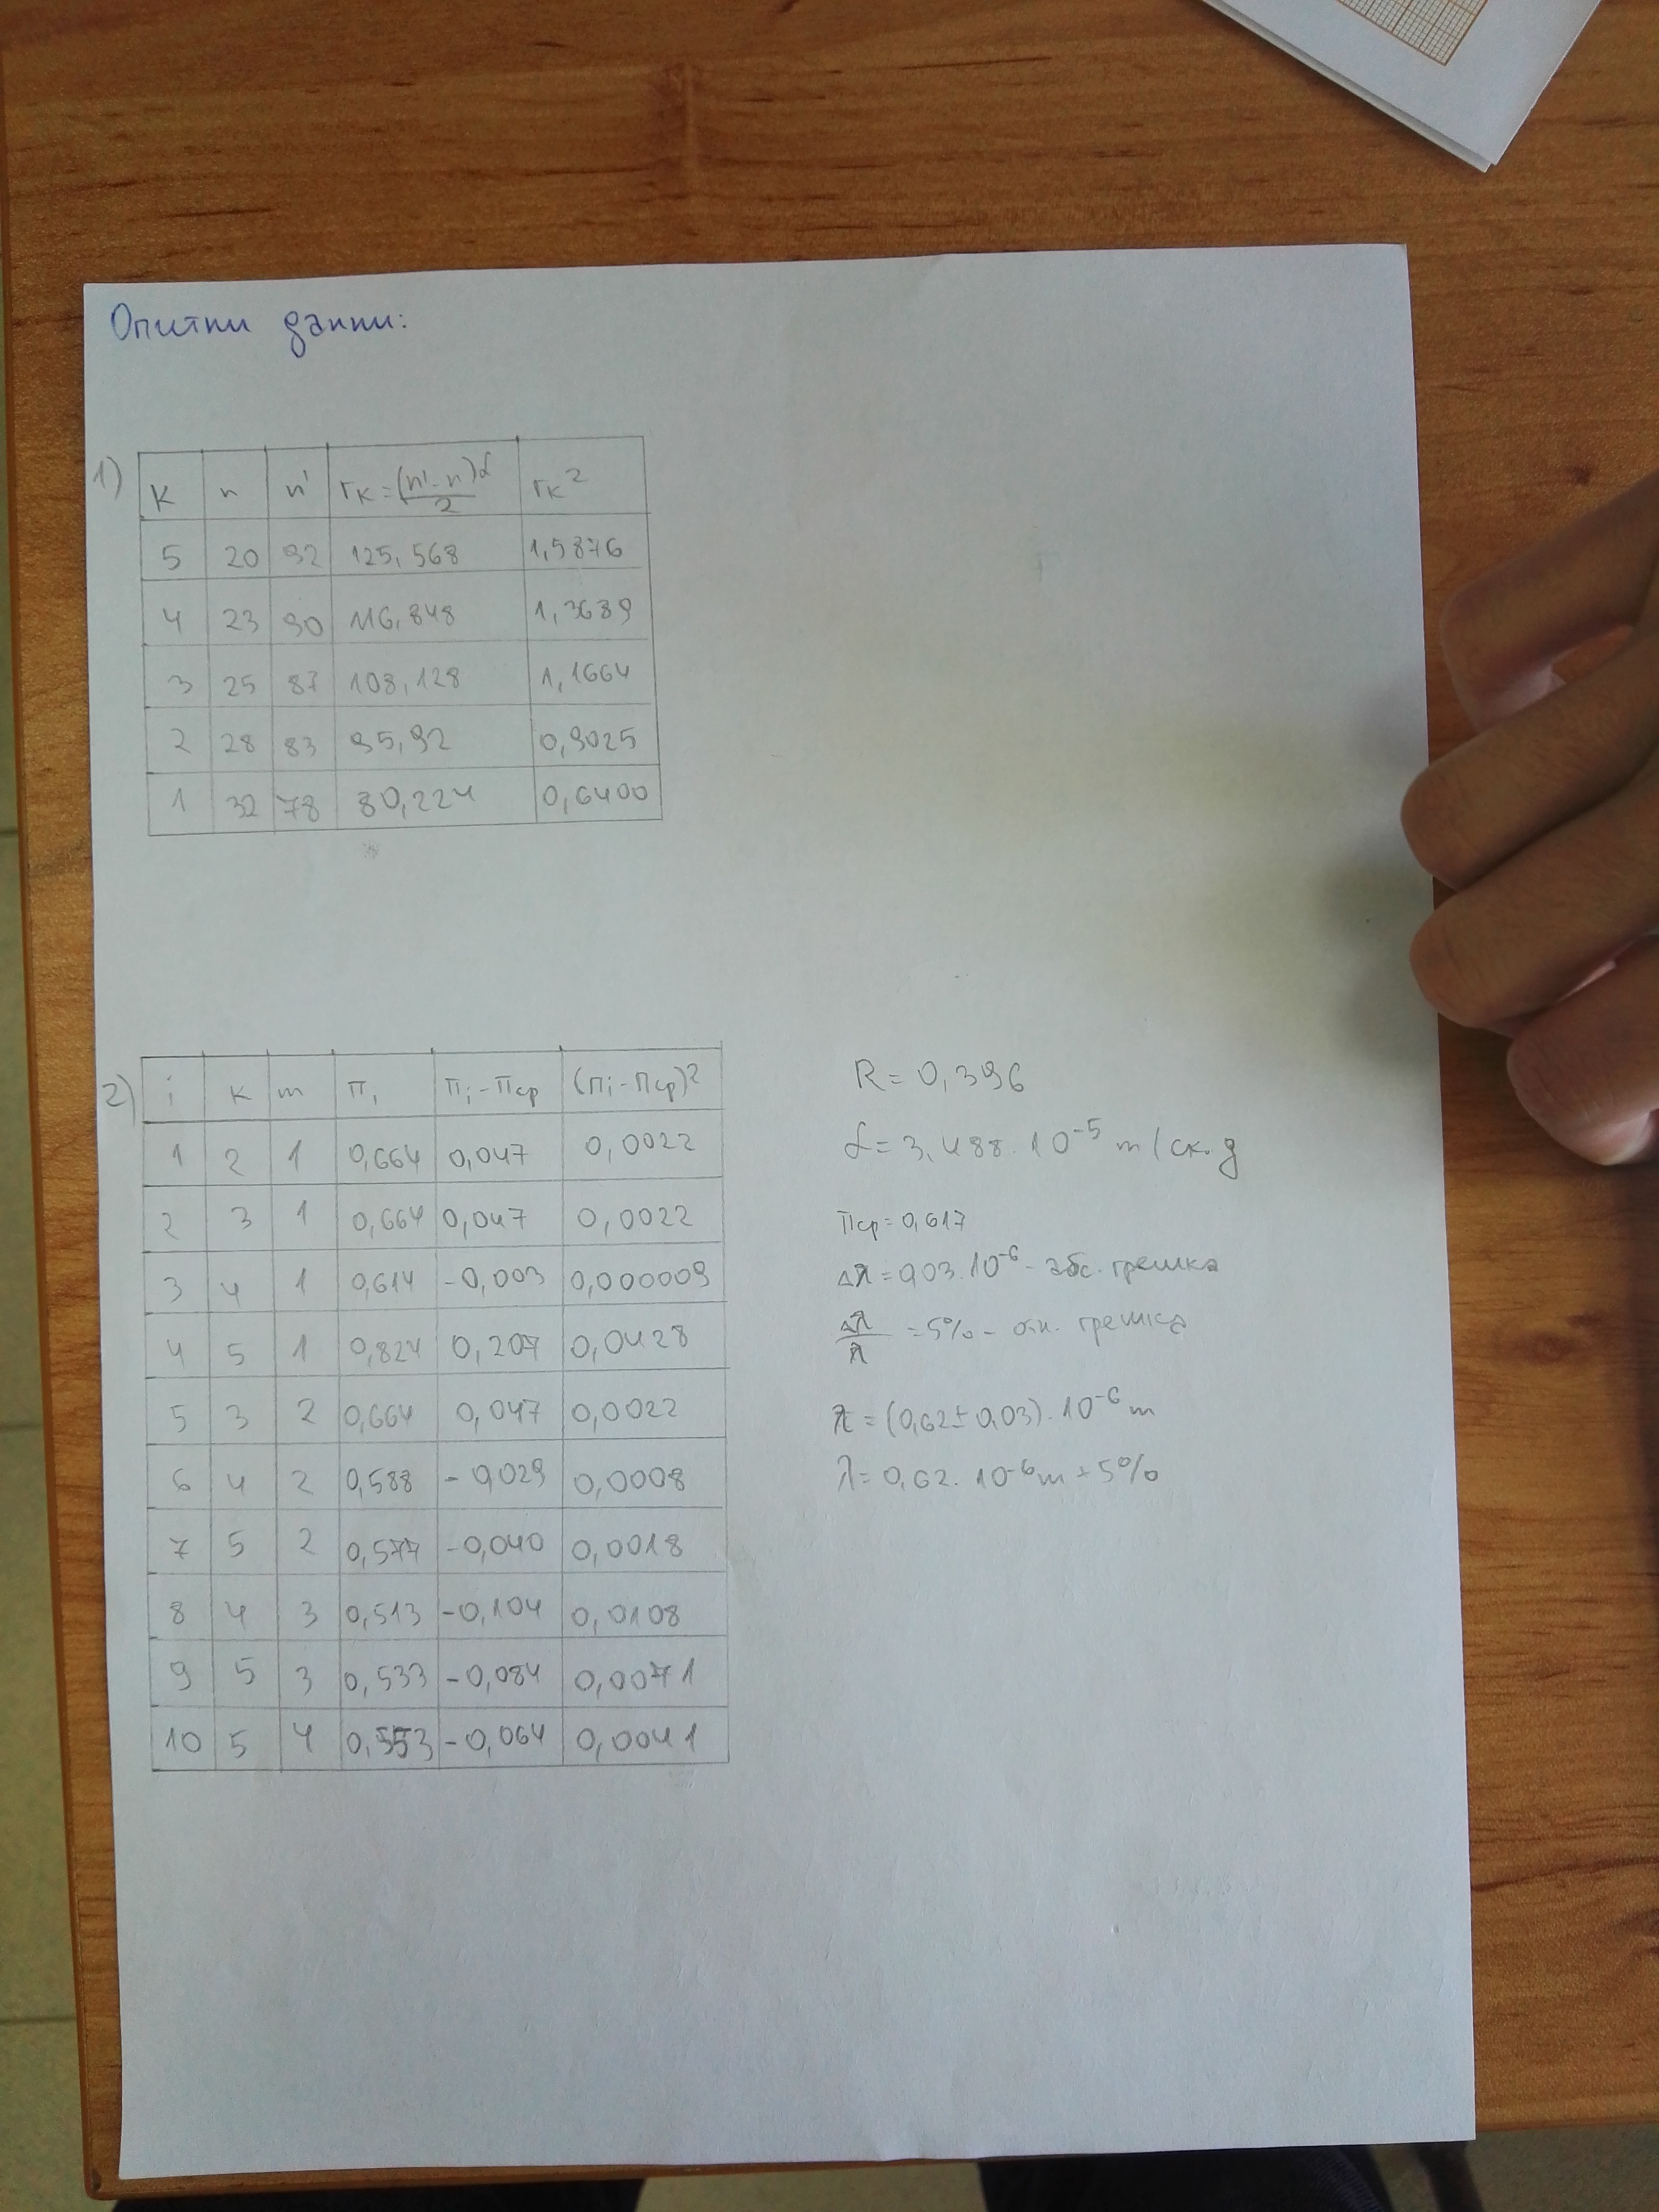 Опитни данни:
1)
K n n' rк=(n'-n)α/2 rк²
5 20 92 125,568 1,5876
4 23 90 116,848 1,3689
3 25 87 108,128 1,1664
2 28 83 95,92 0,9025
1 32 78 80,224 0,6400
2)
i K m Пi Пi-Пср (Пi-Пср)²
1 2 1 0,664 0,047 0,0022
2 3 1 0,664 0,047 0,0022
3 4 1 0,614 -0,003 0,000009
4 5 1 0,824 0,207 0,0428
5 3 2 0,664 0,047 0,0022
6 4 2 0,588 -0,029 0,0008
7 5 2 0,577 -0,040 0,0018
8 4 3 0,513 -0,104 0,0108
9 5 3 0,533 -0,084 0,0071
10 5 4 0,553 -0,064 0,0041
R=0,396
α=3,488.10⁻⁵ m/ск.д
Пср=0,617
Δλ=0,03.10⁻⁶ - абс. грешка
Δλ/λ =5% - отн. грешка
λ=(0,62±0,03).10⁻⁶m
λ=0,62.10⁻⁶m±5%